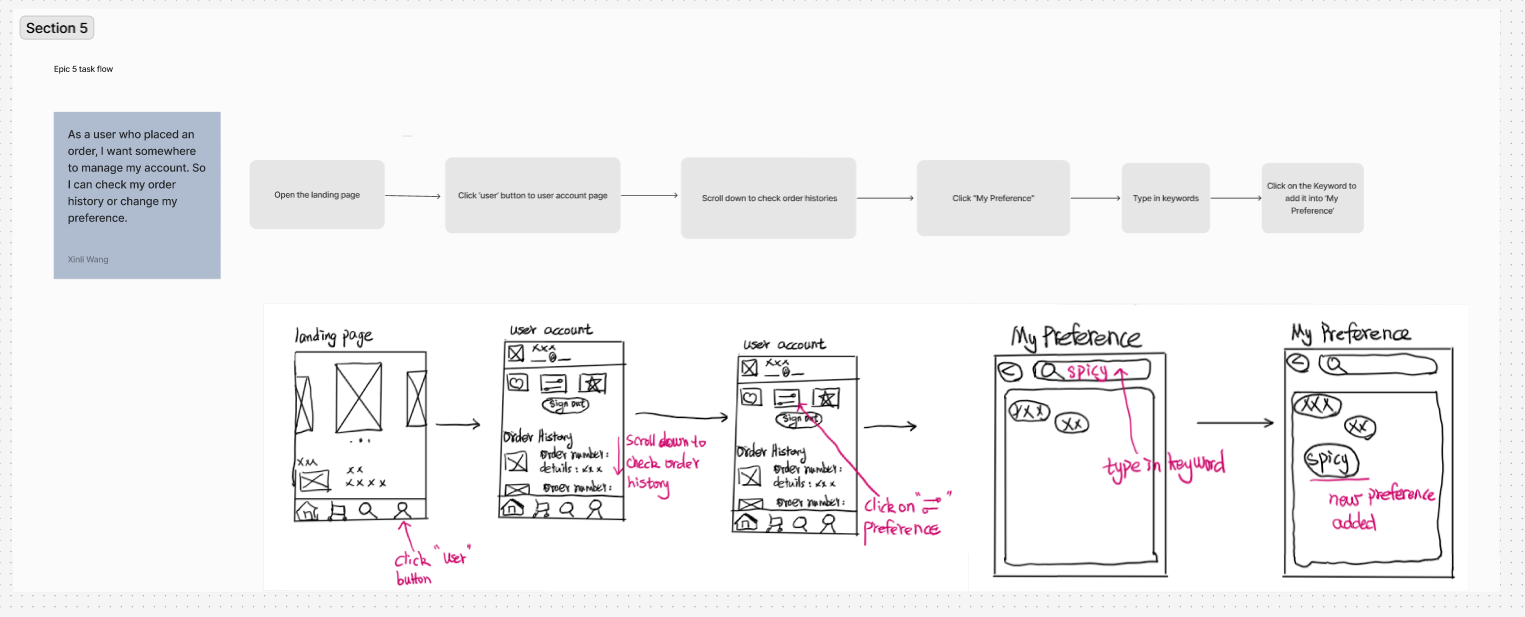 Section 5
Epic 5 task flow
As a user who placed an
order, I want somewhere
to manage my account. So
I can check my order
history or change my
preference.
Xinli Wang
Open the landing page
Click 'user' button to user account page
Scroll down to check order histories
Click "My Preference"
Type in keywords
Click on the Keyword to
add it into 'My
Preference'
landing page
xxx
xx
xxxx
click "user"
button
user account
xxx
Sign out
Order History
Order number:
details: xxx
Order number:
Scroll down to
check order
history
user account
xxx
Sign out
Order History
Order number:
details: xxx
Order number:
click on " "
preference
My Preference
spicy
xxx
xx
type in keyword
My Preference
xxx
xx
spicy
new preference
added